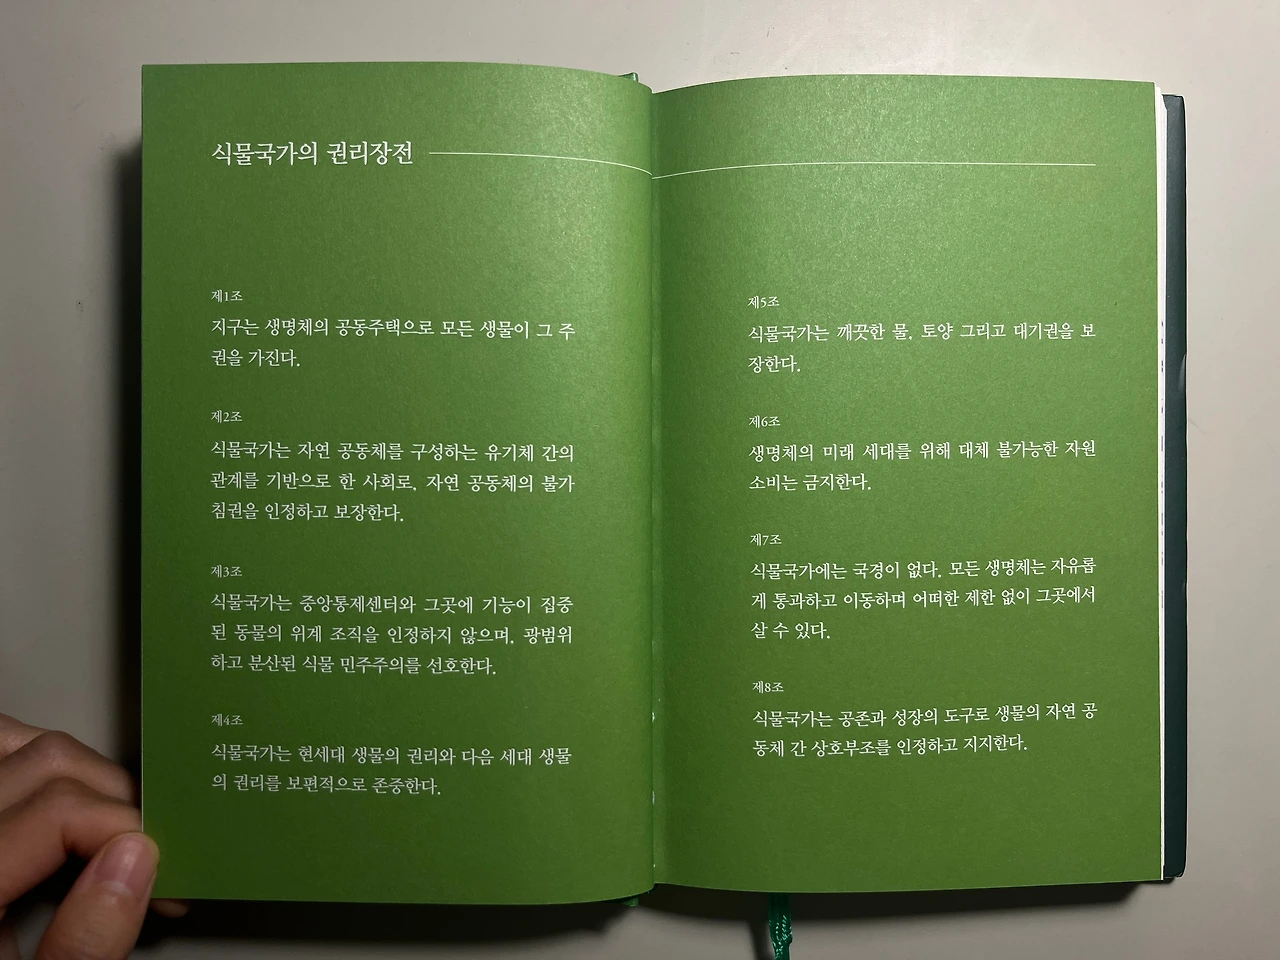 식물국가의 권리장전
제1조
지구는 생명체의 공동주택으로 모든 생물이 그 주
권을 가진다.
제2조
식물국가는 자연 공동체를 구성하는 유기체 간의
관계를 기반으로 한 사회로, 자연 공동체의 불가
침권을 인정하고 보장한다.
제3조
식물국가는 중앙통제센터와 그곳에 기능이 집중
된 동물의 위계 조직을 인정하지 않으며, 광범위
하고 분산된 식물 민주주의를 선호한다.
제4조
식물국가는 현세대 생물의 권리와 다음 세대 생물
의 권리를 보편적으로 존중한다.
제5조
식물국가는 깨끗한 물, 토양 그리고 대기권을 보
장한다.
제6조
생명체의 미래 세대를 위해 대체 불가능한 자원
소비는 금지한다.
제7조
식물국가에는 국경이 없다. 모든 생명체는 자유롭
게 통과하고 이동하며 어떠한 제한 없이 그곳에서
살 수 있다.
제8조
식물국가는 공존과 성장의 도구로 생물의 자연 공
동체 간 상호부조를 인정하고 지지한다.